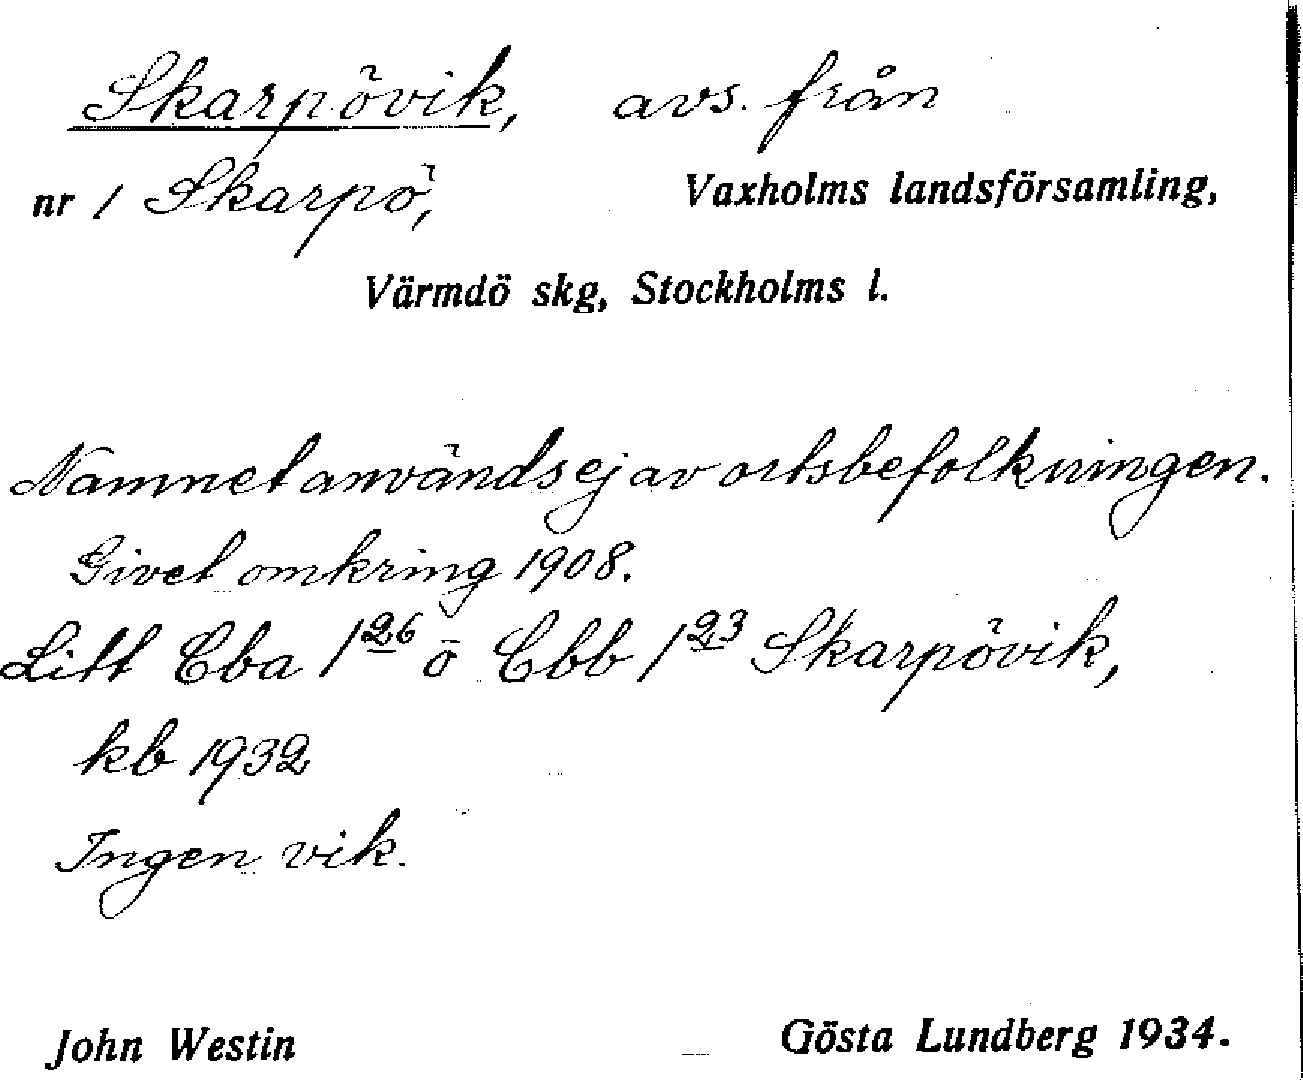 Skarpövik, avs. från
nr 1 Skarpö, Vaxholms landsförsamling,
Värmdö skg, Stockholms l.
Namnet används ej av ortsbefolkningen.
Givet omkring 1908.
Litt Cba 1²⁶ o Cbb 1²³ Skarpövik,
kb 1932
Ingen vik.
John Westin Gösta Lundberg 1934.